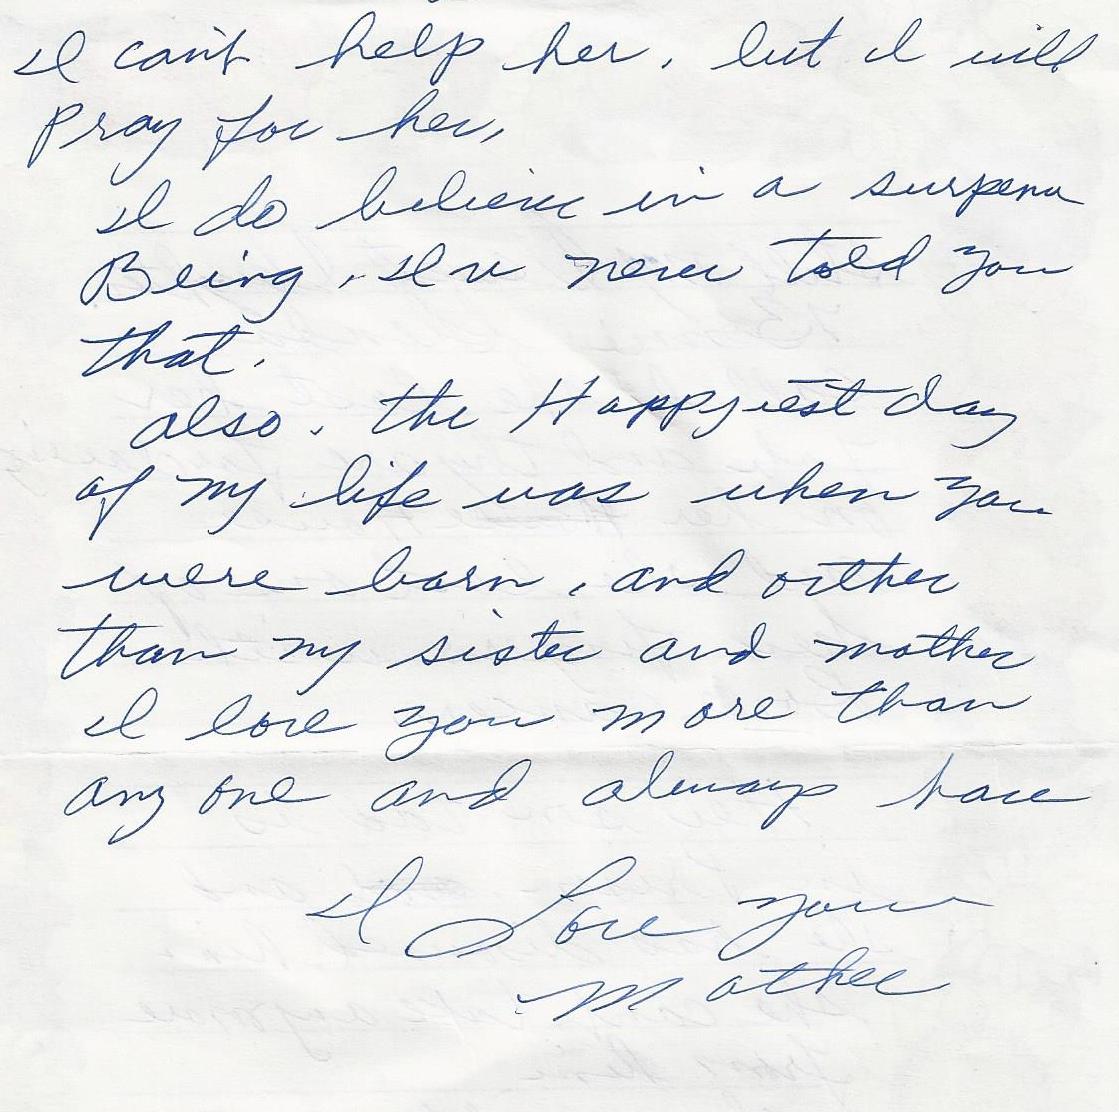 I can't help her, but I will
pray for her,
I do believe in a surpena
Being, I'v never told you
that.
also, the Happyiest day
of my life was when you
were born, and orther
than my sister and mother
I love you more than
any one and always have
I Love you
Mother